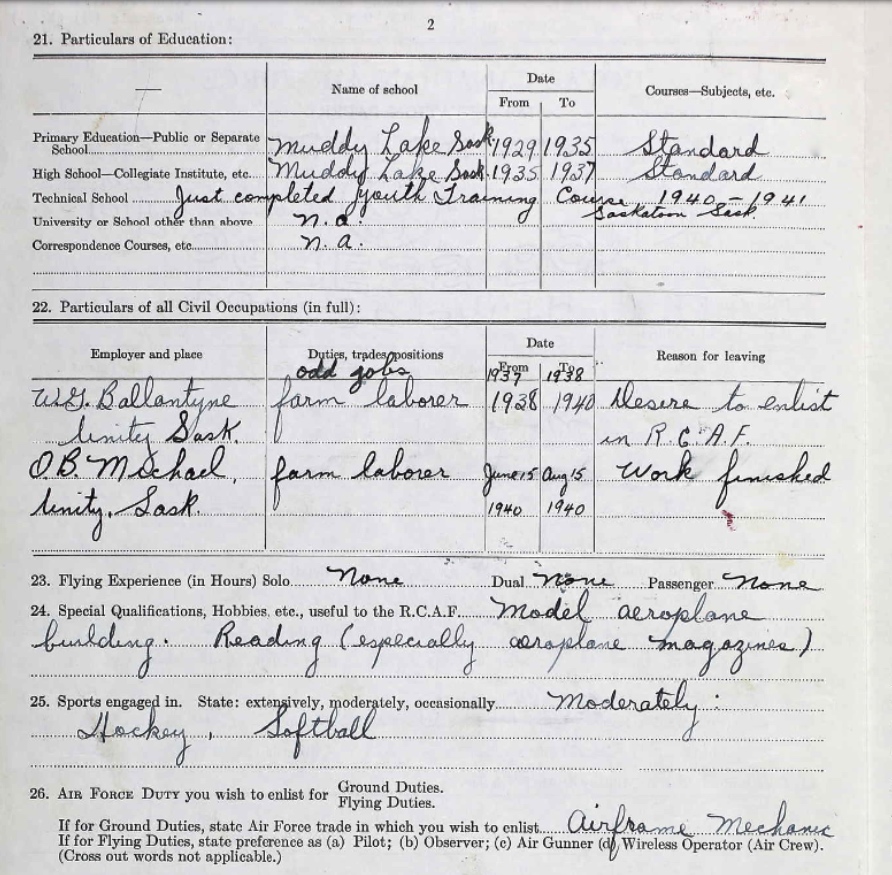 2
21. Particulars of Education:
Name of school Date Courses—Subjects, etc.
From To
Primary Education—Public or Separate School Muddy Lake Sask. 1929 1935 Standard
High School—Collegiate Institute, etc. Muddy Lake Sask. 1935 1937 Standard
Technical School Just completed Youth Training Course 1940 - 1941
Saskatoon Sask.
University or School other than above n.a.
Correspondence Courses, etc. n.a.
22. Particulars of all Civil Occupations (in full):
Employer and place Duties, trades, positions Date Reason for leaving
From To
odd jobs 1937 1938
W.G. Ballantyne farm laborer 1938 1940 Desire to enlist
Unity Sask. in R.C.A.F.
O.B. Michael, farm laborer June 15 Aug 15 Work finished
Unity, Sask. 1940 1940
23. Flying Experience (in Hours) Solo None Dual None Passenger None
24. Special Qualifications, Hobbies, etc., useful to the R.C.A.F. Model aeroplane
building. Reading (especially aeroplane magazines)
25. Sports engaged in. State: extensively, moderately, occasionally Moderately:
Hockey, Softball
26. AIR FORCE DUTY you wish to enlist for Ground Duties.
Flying Duties.
If for Ground Duties, state Air Force trade in which you wish to enlist Airframe Mechanic
If for Flying Duties, state preference as (a) Pilot; (b) Observer; (c) Air Gunner (d) Wireless Operator (Air Crew).
(Cross out words not applicable.)